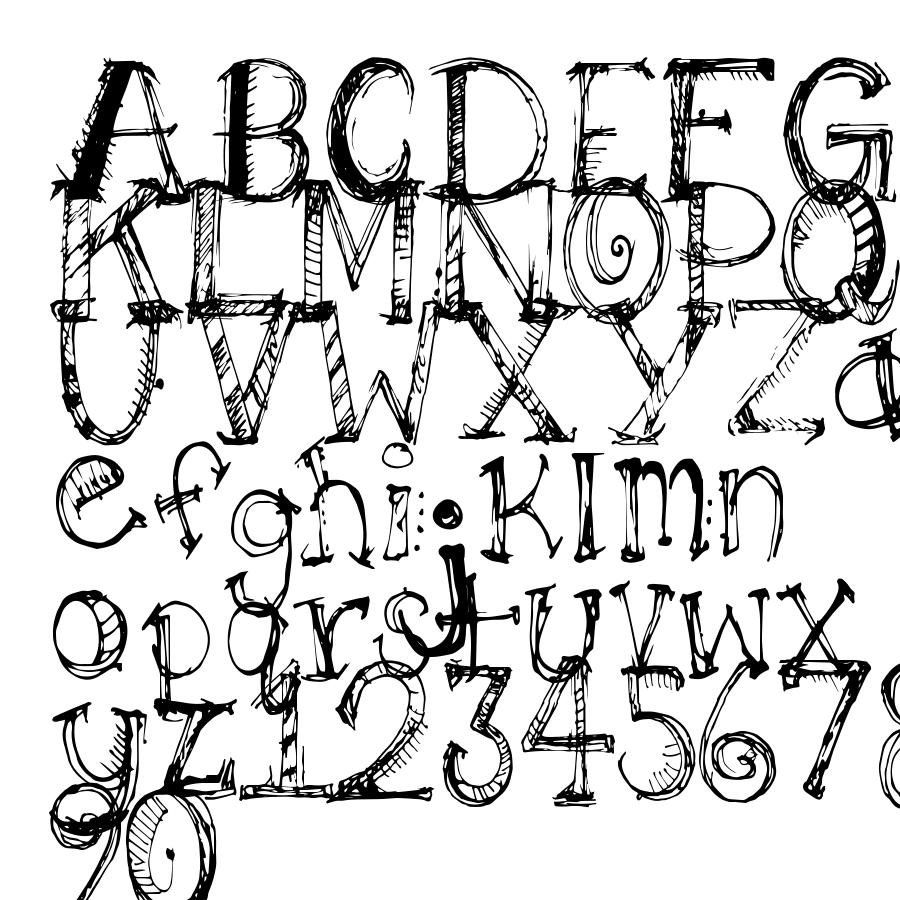 ABCDEFG
KLMNOPQ
UVWXYZa
efghijklmn
opqrstuvwx
yz12345678
90